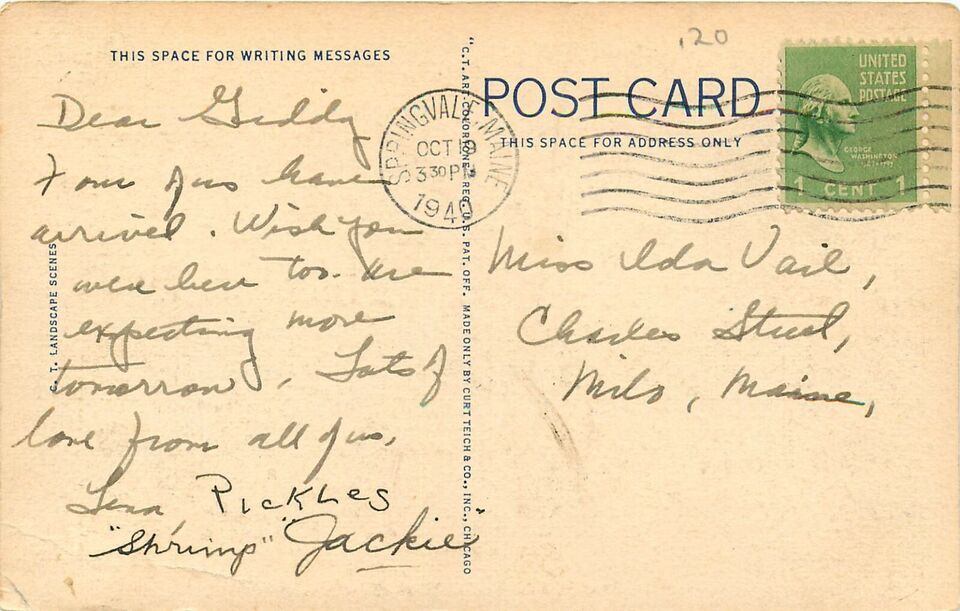 THIS SPACE FOR WRITING MESSAGES
Dear Giddy
Four of us have
arrived. Wish you
were here too. Are
expecting more
tomorrow. Lots of
love from all of us.
Lena PICKLES
"Shrimp" "Jackie"
C. T. LANDSCAPE SCENES
"C.T. ART-COLORTONE" REG. U.S. PAT. OFF. MADE ONLY BY CURT TEICH & CO., INC., CHICAGO
.120
POST CARD
THIS SPACE FOR ADDRESS ONLY
SPRINGVALE, MAINE
OCT
3 30 PM
1940
UNITED
STATES
POSTAGE
GEORGE
WASHINGTON
1 CENT 1
Miss Ida Vail,
Charles Street,
Milo, Maine,